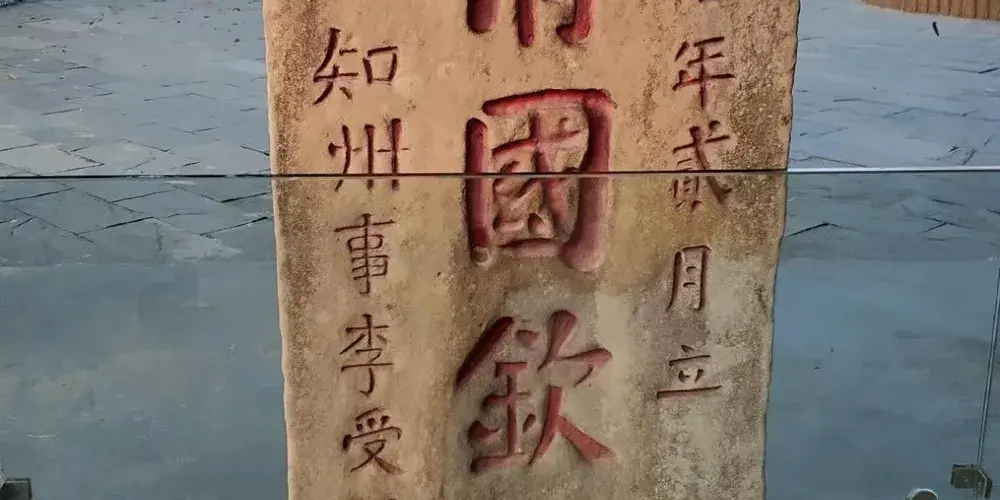 年貳月立
國欽
知州事李受